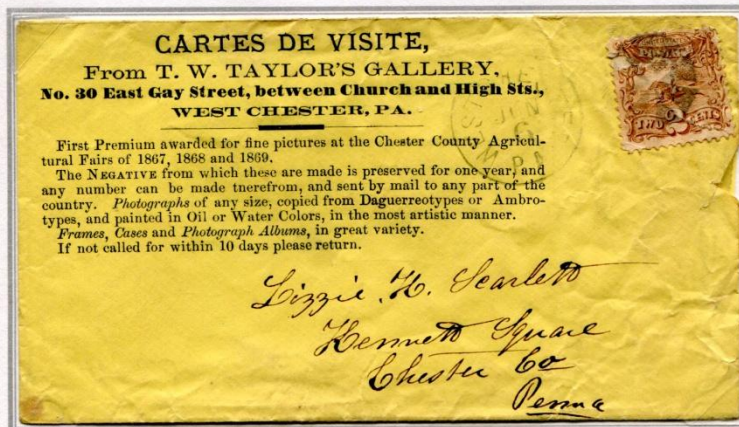 CARTES DE VISITE,
From T. W. TAYLOR'S GALLERY,
No. 30 East Gay Street, between Church and High Sts.,
WEST CHESTER, PA.
First Premium awarded for fine pictures at the Chester County Agricul-
tural Fairs of 1867, 1868 and 1869.
The NEGATIVE from which these are made is preserved for one year, and
any number can be made tnerefrom, and sent by mail to any part of the
country. Photographs of any size, copied from Daguerreotypes or Ambro-
types, and painted in Oil or Water Colors, in the most artistic manner.
Frames, Cases and Photograph Albums, in great variety.
If not called for within 10 days please return.
WEST CHESTER
JUN
6
PA
TWO 2 CENTS
Lizzie. H. Scarlett
Kennett Square
Chester Co
Penna